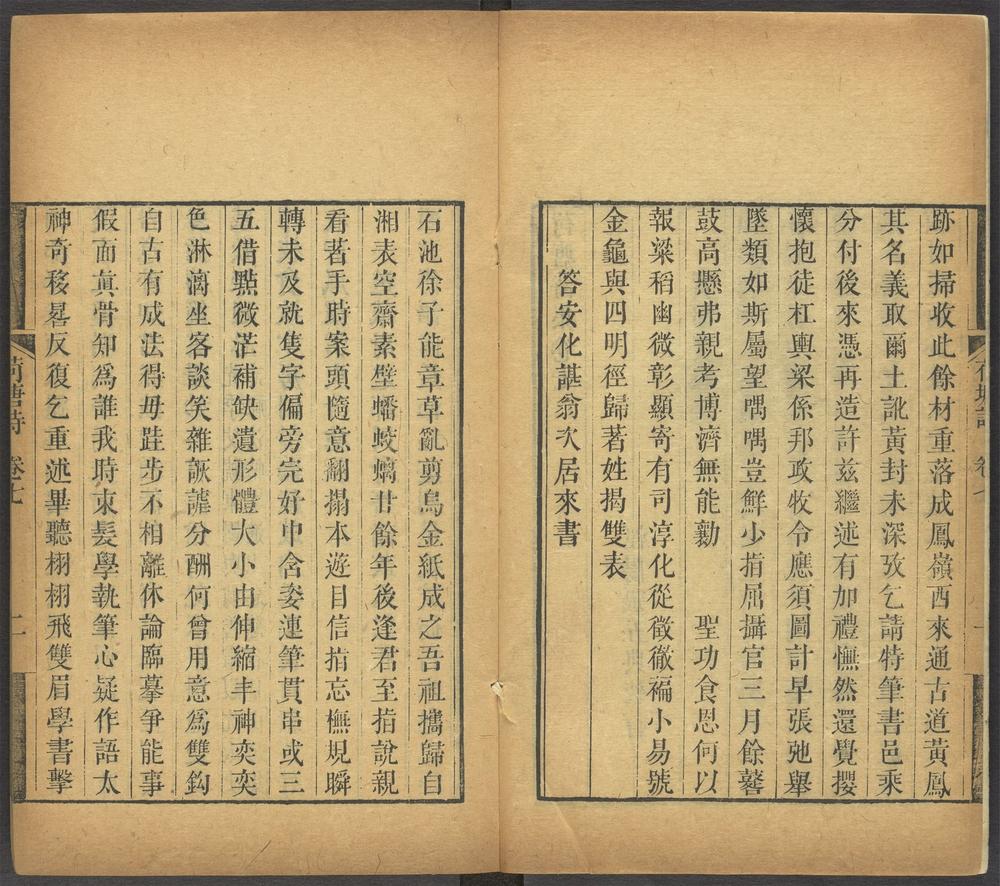 跡如掃收此餘材重落成鳳嶺西來通古道黃鳳
其名義取爾土訛黃封未深攷乞請特筆書邑乘
分付後來憑再造許茲繼述有加禮憮然還覺攖
懷抱徒杠輿梁係邦政牧令應須圖計早張弛舉
墜類如斯屬望喁喁豈鮮少指屈攝官三月餘鼛
鼓高懸弗親考博濟無能勷　聖功食恩何以
報粱稻幽微彰顯寄有司淳化從徵徹褊小易號
金龜與四明徑歸著姓揭雙表
答安化諶翁次居來書
石池徐子能章草亂剪烏金紙成之吾祖攜歸自
湘表空齋素壁蟠蛟螭廿餘年後逢君至指說親
看著手時案頭隨意翻搨本遊目信指忘橅規瞬
轉未及就隻字偏旁完好中含姿連筆貫串或三
五借點微茫補缺遺形體大小由伸縮丰神奕奕
色淋漓坐客談笑雜詼謔分酬何曾用意爲雙鈎
自古有成法得毋跬步不相離休論臨摹爭能事
假面眞骨知爲誰我時束髮學執筆心疑作語太
神奇移晷反復乞重述畢聽栩栩飛雙眉學書擊
荷塘詩　卷七　二